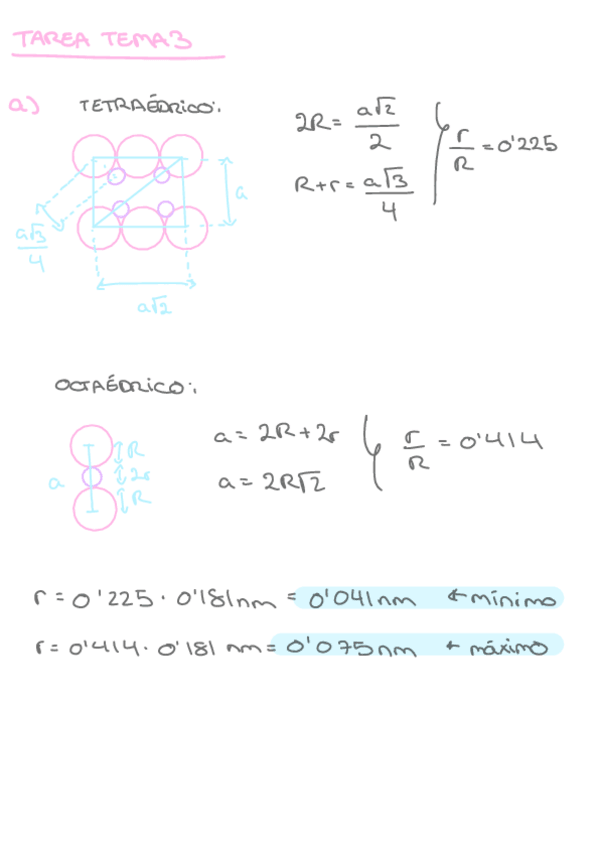 TAREA TEMA 3
a) TETRAÉDRICO:
2R = a√2/2
R+r = a√3/4
r/R = 0'225
a
a√3/4
a√2
OCTAÉDRICO:
a
R
2r
R
a = 2R + 2r
a = 2R√2
r/R = 0'414
r = 0'225 · 0'181nm = 0'041nm ← mínimo
r = 0'414 · 0'181 nm = 0'075nm ← máximo